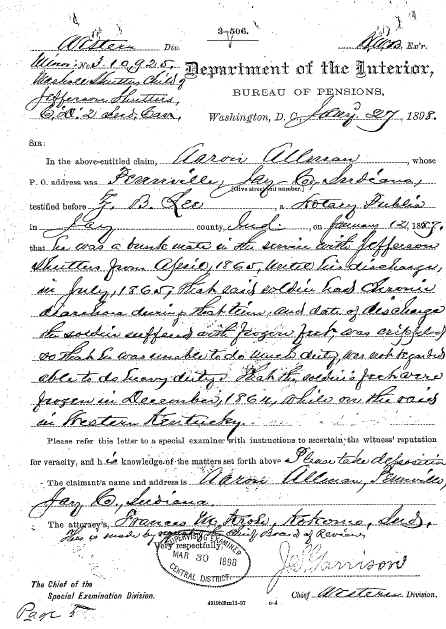 3-506.
Western Div.
Ex'r.
Minor: No. 310,925.
Department of the Interior,
Jefferson Shutters,
BUREAU OF PENSIONS,
C. "D." 2 Ind. Cav.
Washington, D. C., Jan'y 27, 1898.
SIR:
In the above-entitled claim, Aaron Allman, whose
P. O. address was Pennville, Jay Co., Indiana,
(Give street and number)
testified before G. B. Lee a Notary Public
in Jay county, Ind., on January 12, 1887,
that he was a bunk mate in the service with Jefferson
Shutters from April, 1865, until his discharge,
in July, 1865, that said soldier had chronic
diarrhoea during that time, and date of discharge
the soldier suffered with frozen feet, was crippled
so that he was unable to do much duty, was not regarded
able to do heavy duty. That the soldier's feet were
frozen in December, 1864, while on the raid
in Western Kentucky.
Please refer this letter to a special examiner with instructions to ascertain the witness' reputation
for veracity, and his knowledge of the matters set forth above. Please take deposition
The claimant's name and address is Aaron Allman, Pennville,
Jay Co., Indiana.
The attorney's, Frances M. Kokomo, Ind.
This is made by Chief Board of Review.
Very respectfully,
SUPERVISING EXAMINER
MAR 30 1898
CENTRAL DISTRICT
J. Garrison
The Chief of the
Special Examination Division.
Chief Western Division.
Page 5